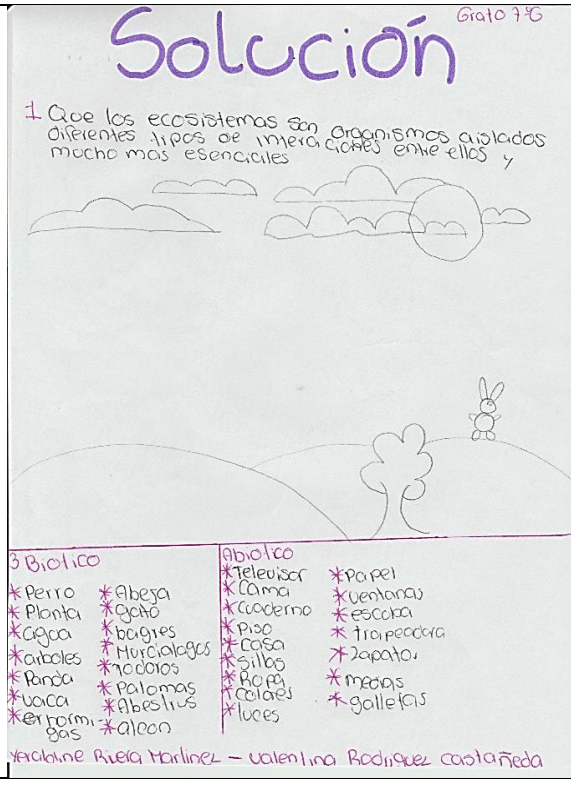 Grato 7-G
Solución
1 Que los ecosistemas son organismos aislados
diferentes tipos de interaciones entre ellos y
mucho mas esenciales
3 Biotico
* Perro
* Planta
* agoa
* arboles
* Panda
* vaca
* enhormi-
gas
* Abeja
* gato
* bagres
* Murcialagos
* Palomas
* Abestrus
* alcon
Abiotico
* Televisor
* Cama
* Cuaderno
* Piso
* Casa
* Sillas
* Ropa
* Colores
* luces
* Papel
* ventanas
* escoba
* trapeadora
* zapatos
* medias
* galletas
Rivera Martinez – Valentina Rodriguez Castañeda